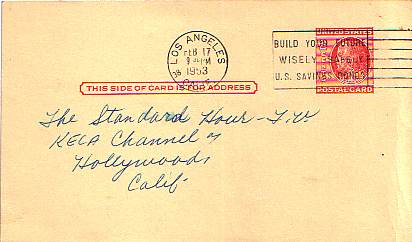 LOS ANGELES
FEB 17
1953
CALIF.
BUILD YOUR FUTURE
WISELY SAFELY
U.S. SAVINGS BONDS
UNITED STATES
POSTAL CARD
THIS SIDE OF CARD IS FOR ADDRESS
The Standard Hour - T.V.
KECA Channel 7
Hollywood
Calif